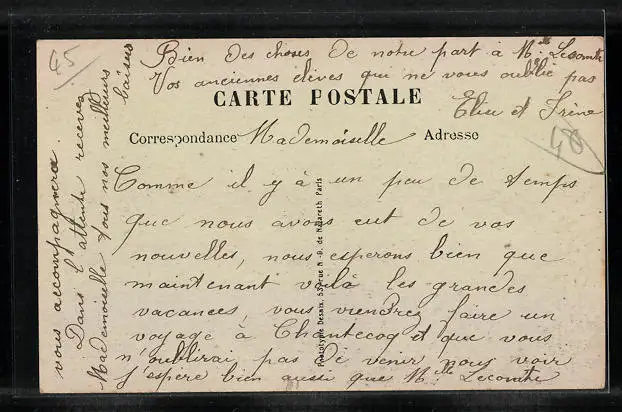 45
Bien des choses de notre part à Mlle Lecomte
Vos anciennes élèves qui ne vous oublie pas
Elise et Irène
CARTE POSTALE
48
Correspondance Mademoiselle Adresse
Comme il y à un peu de temps
que nous avons eut de vos
nouvelles, nous esperons bien que
maintenant voilà les grandes
vacances, vous viendrez faire un
voyage à Chantecoq et que vous
n'oublirai pas de venir nous voir
J'espère bien aussi que Mlle Lecomte
vous accompagnera.
Dans l'attente recevez
Mademoiselle tous nos meilleurs
baisers
Phototypie Desaix, 53, rue N.-D. de Nazareth Paris